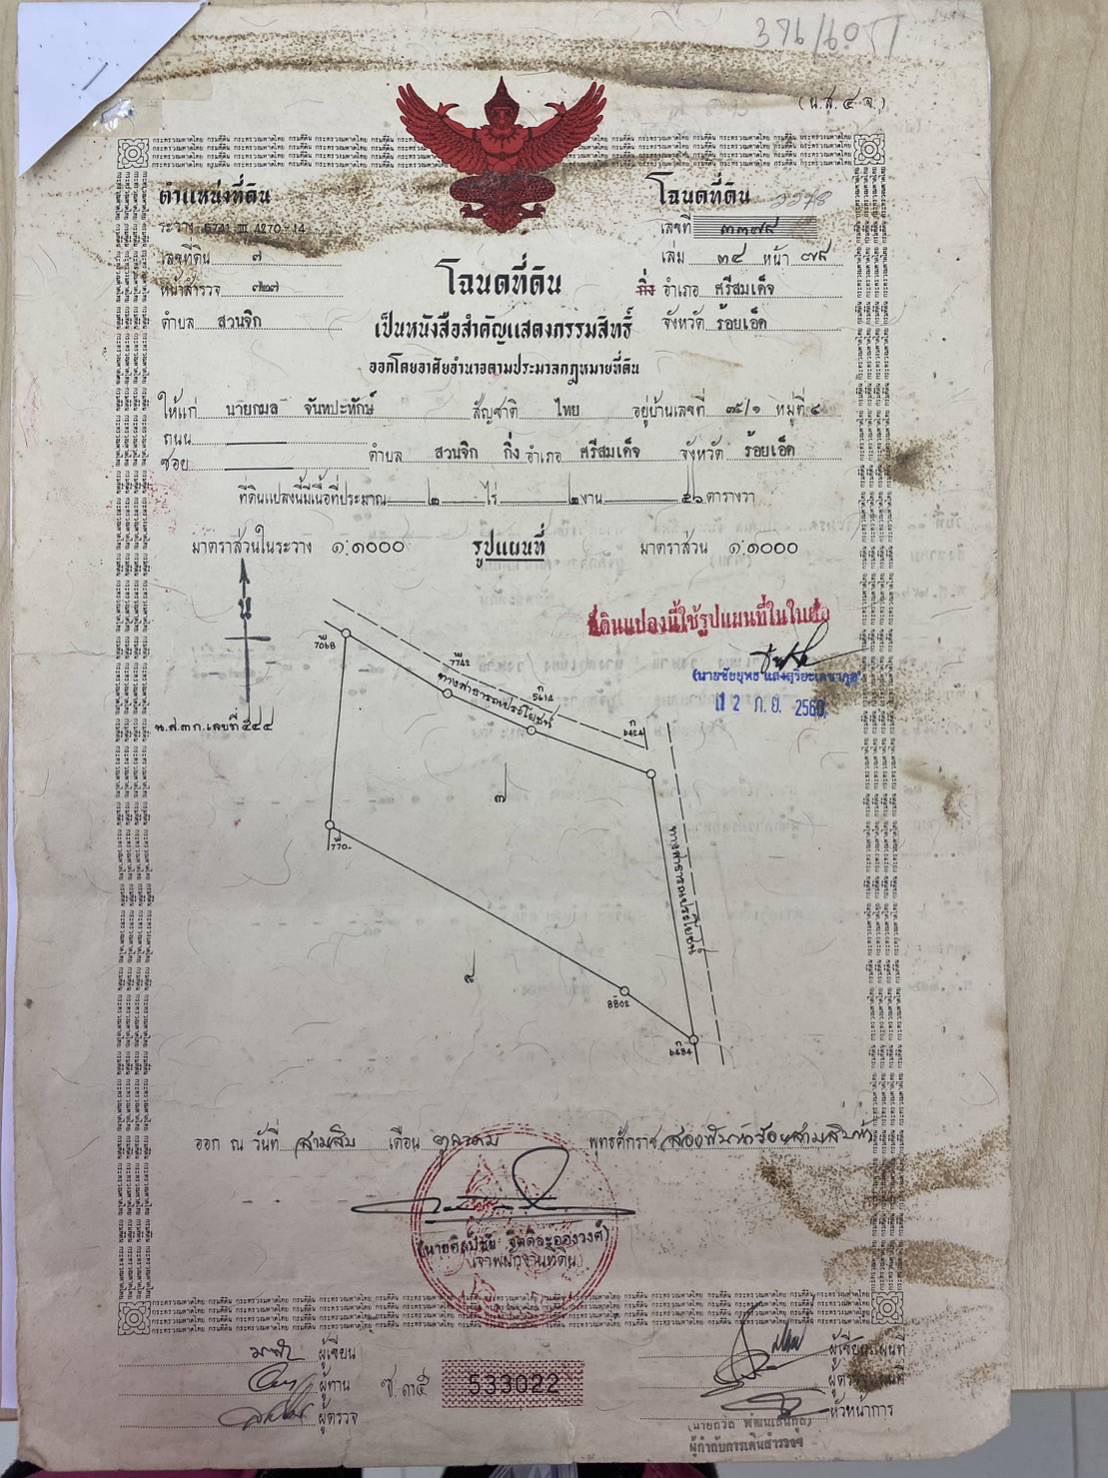 (น.ส.๔ จ.)
ตำแหน่งที่ดิน
โฉนดที่ดิน
ระวาง 5741 III 4270-14
เลขที่ ๓๓๗๘
เลขที่ดิน ๗
เล่ม ๓๔ หน้า ๗๘
หน้าสำรวจ ๗๒๗
โฉนดที่ดิน
กิ่ง อำเภอ ศรีสมเด็จ
ตำบล สวนจิก
เป็นหนังสือสำคัญแสดงกรรมสิทธิ์
จังหวัด ร้อยเอ็ด
ออกโดยอาศัยอำนาจตามประมวลกฎหมายที่ดิน
ให้แก่ นายกมล จันทปะทักษ์ สัญชาติ ไทย อยู่บ้านเลขที่ ๓๕/๑ หมู่ที่ ๕
ถนน
ซอย ตำบล สวนจิก กิ่ง อำเภอ ศรีสมเด็จ จังหวัด ร้อยเอ็ด
ที่ดินแปลงนี้มีเนื้อที่ประมาณ ๒ ไร่ ๒ งาน ๕๖ ตารางวา
มาตราส่วนในระวาง ๑:๑๐๐๐ รูปแผนที่ มาตราส่วน ๑:๑๐๐๐
น
ที่ดินแปลงนี้ใช้รูปแผนที่ในใบต่อ
12 ก.ย. 2560
น.ส.๓ก.เลขที่ ๕๔๕
7068
7742
ทางสาธารณประโยชน์
5612
๗
770
ทางสาธารณประโยชน์
๕
8802
ออก ณ วันที่ สามสิบ เดือน ตุลาคม พุทธศักราช สองพันห้าร้อยสามสิบห้า
เจ้าพนักงานที่ดิน
ผู้เขียน
ผู้เขียนแผนที่
ผู้ทาน
533022
ผู้ตรวจแผนที่
ผู้ตรวจ
หัวหน้าการ
ผู้กำกับการเดินสำรวจฯ